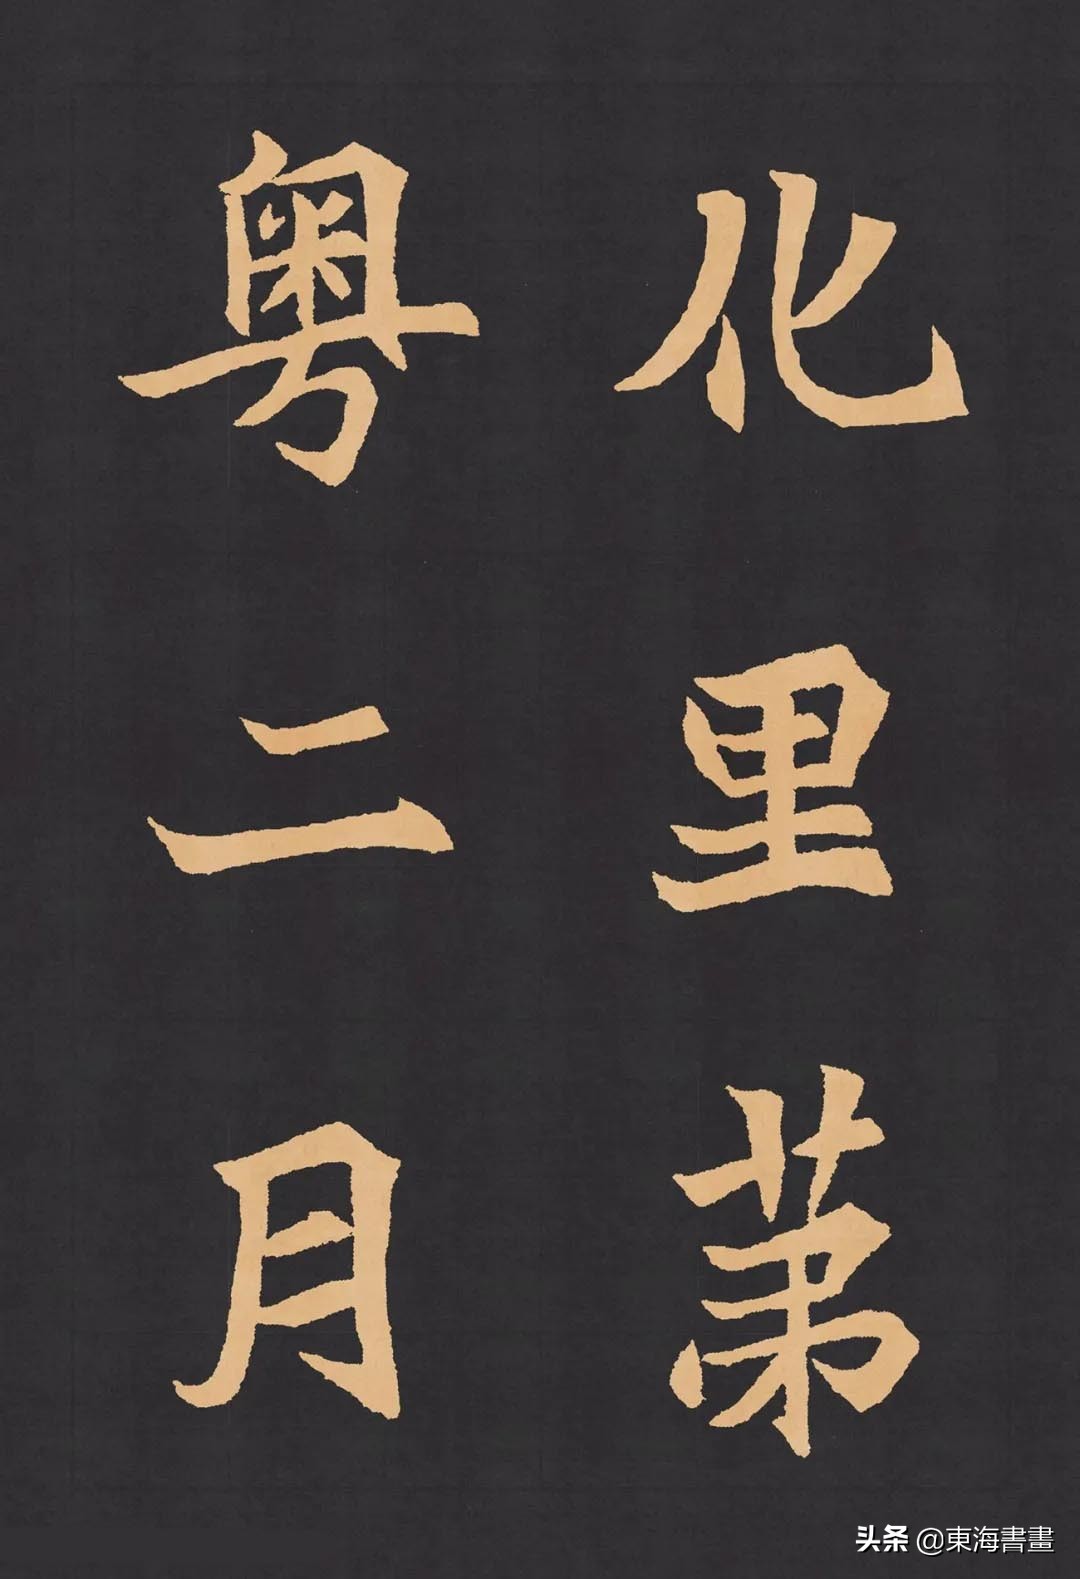 化里苐
粤二月
头条 @東海書畫